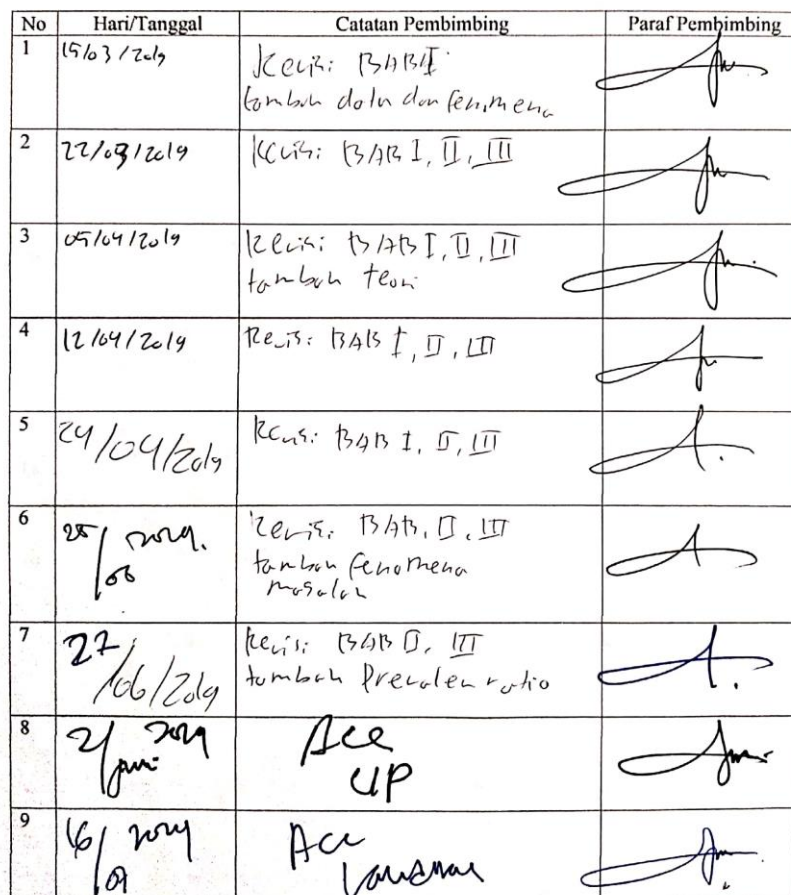 No Hari/Tanggal Catatan Pembimbing Paraf Pembimbing
1 15/03/2019 Revisi: BAB I
tambah data dan fenomena
2 22/03/2019 Revisi: BAB I, II, III
3 05/04/2019 Revisi: BAB I, II, III
tambah teori
4 12/04/2019 Revisi: BAB I, II, III
5 24/04/2019 Revisi: BAB I, II, III
6 25/06 2019. Revisi: BAB, II, III
tambah fenomena
masalah
7 27/06/2019 Revisi: BAB II, III
tambah Prevalen ratio
8 2/ 2019 Acc
UP
9 16/07 2019 Acc